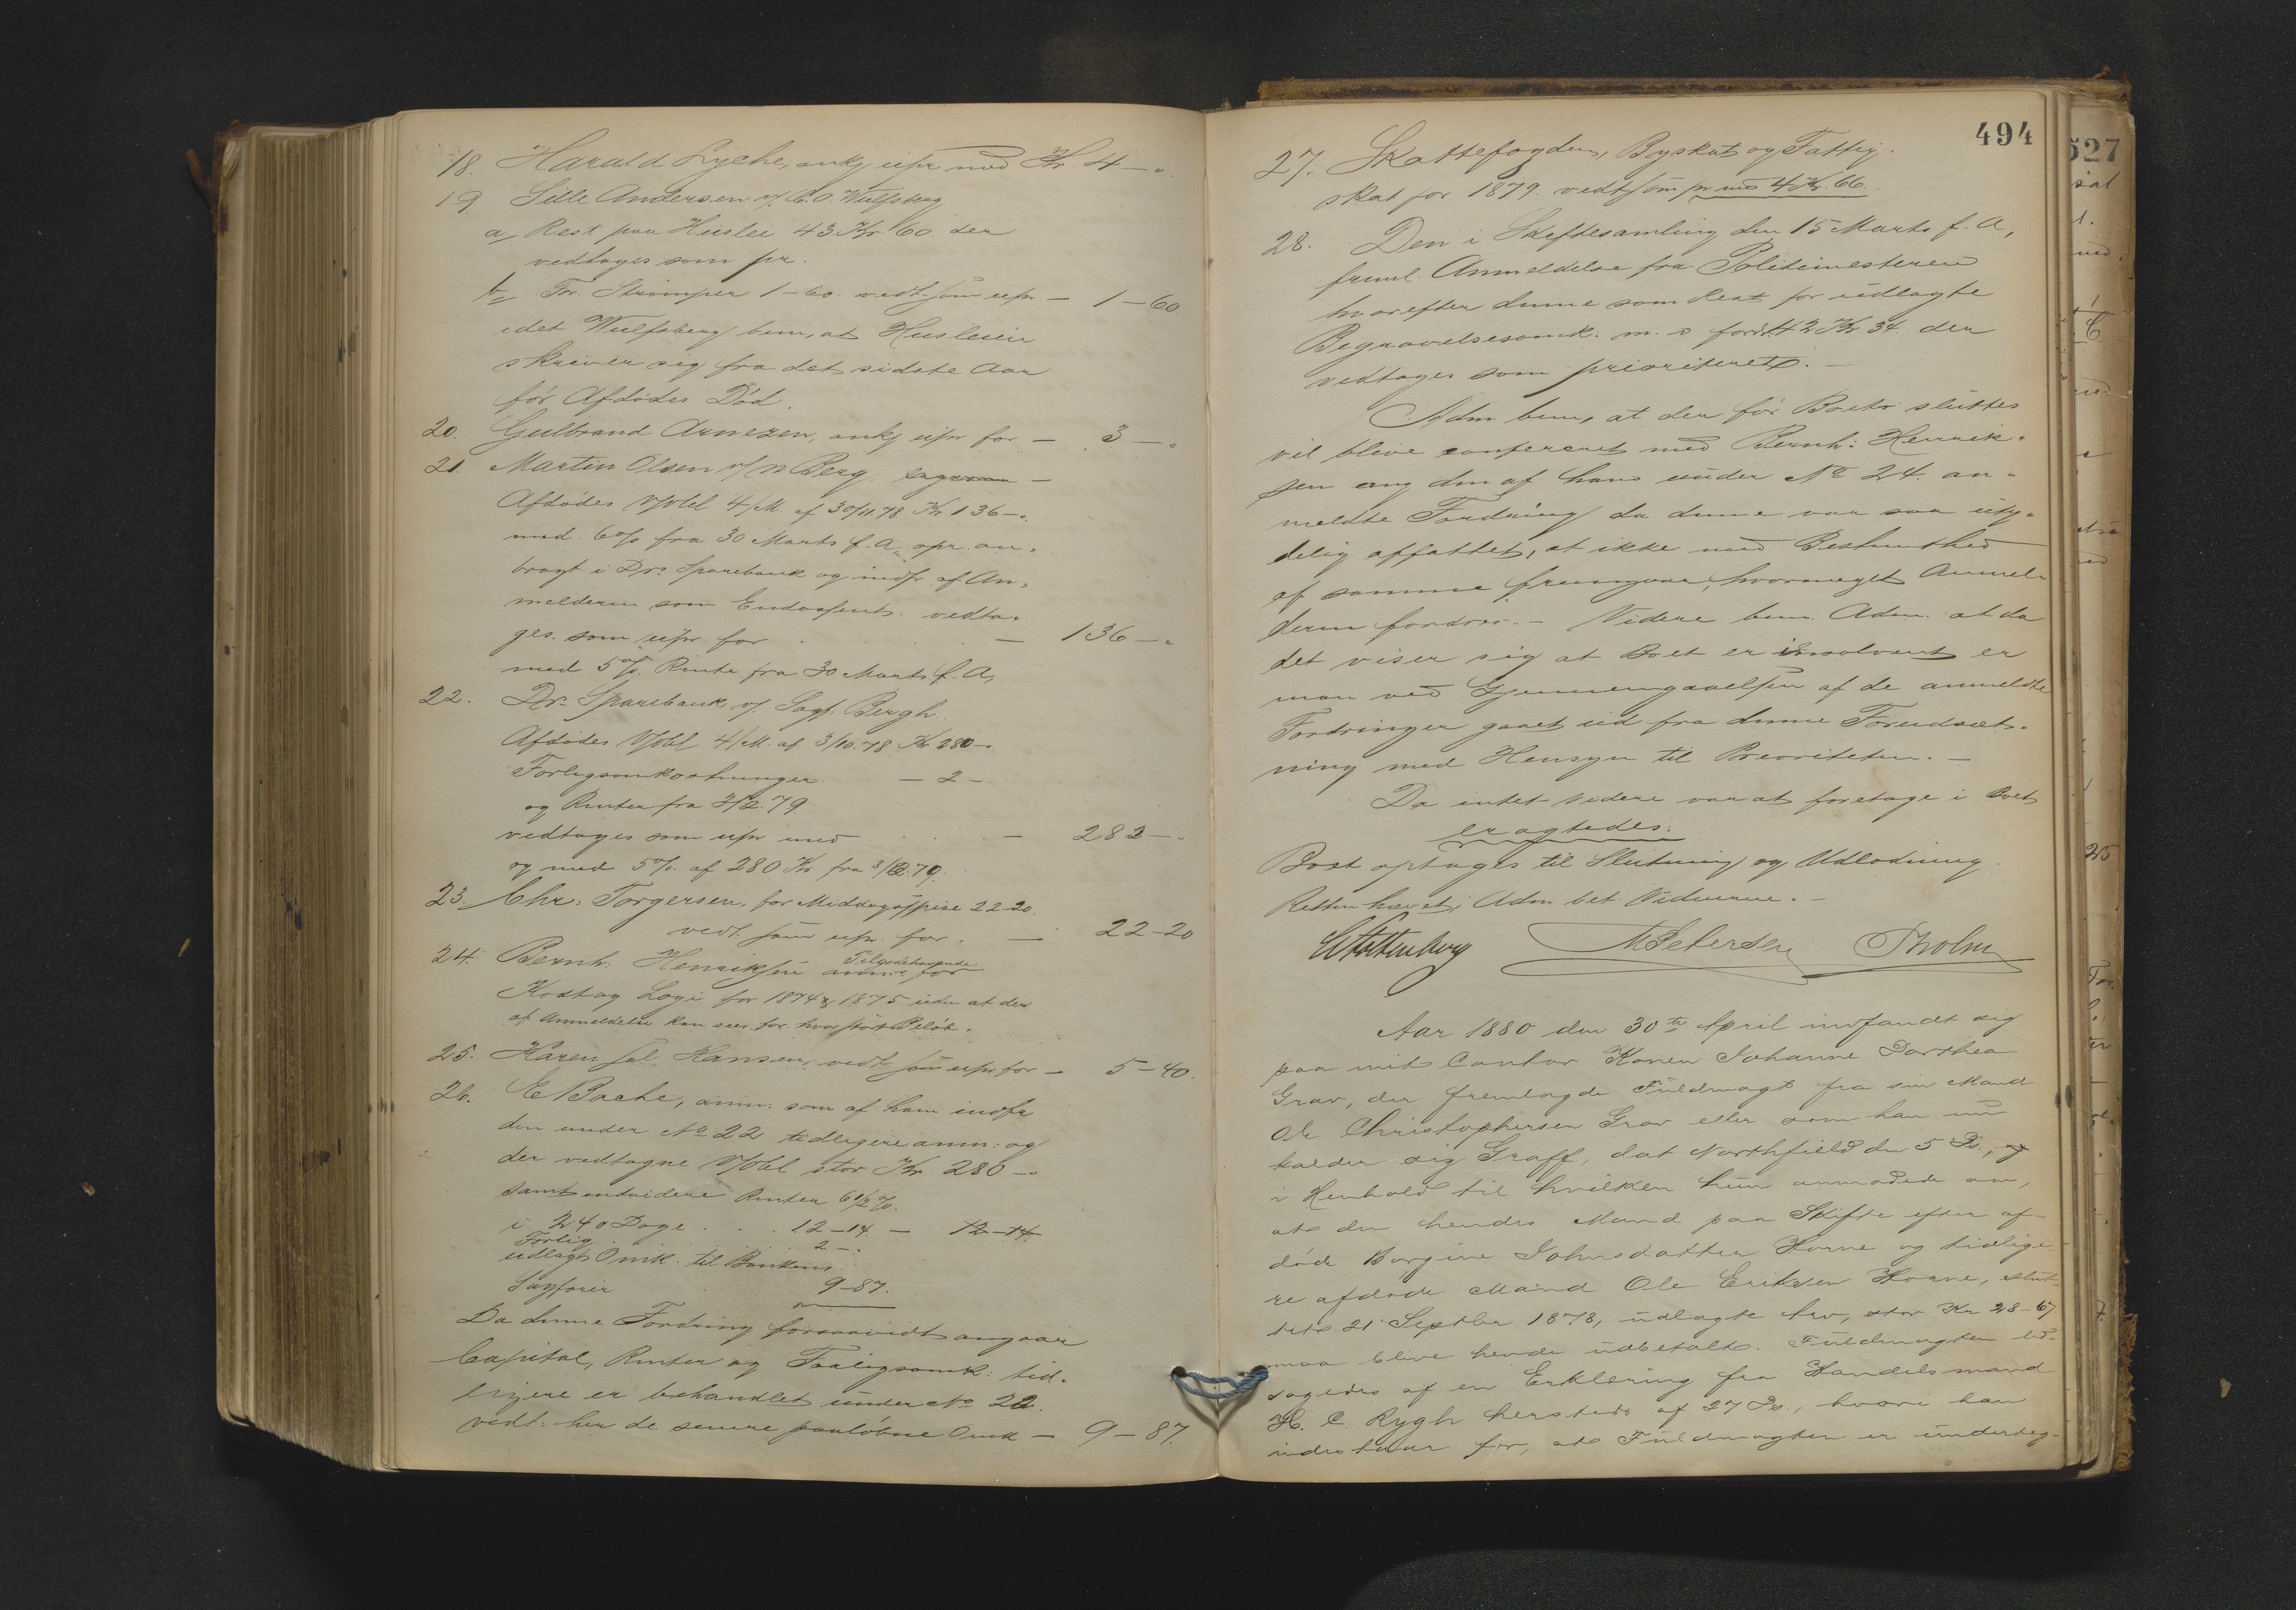 18. Harald Lyche, ankj upr med Kr. 4 — „
19 Sille Andersen v/ C. O. Wulfsberg.
a/ Rest paa Huslei 43 Kr. 60 der
vedtages som pr.
b/ For Strømper 1-60 vedt. som upr — 1-60
idet Wulfsberg bem, at Husleien
skriver sig fra det sidste Aar
før Afdødes Død.
20. Gulbrand Arnesen, ankj upr for — 3 — „
21. Martin Olsen v/ N Berg.
Afdødes V/obl 4/M. af 30/11.78 Kr 136 — „
med 6% fra 30 Marts f. A., opr. an-
bragt i Drs Sparebank og indfr af An-
melderen som Endossent. vedta-
ges. som upr for . . — 136 — „
med 5%. Rente fra 30 Marts f. A,
22. Drs Sparebank v/ Sagf. Bergh
Afdødes V/obl 4/M. af 3/10.78 Kr 280 —
Forligsomkostninger. — 2 —
og Renter fra 3/2.79
vedtages som upr med . . . — 282 — „
og med 5%. af 280 Kr fra 3/2.79.
23. Chr: Torgersen, for Middagsspise 22-20.
vedt. som upr. for. — 22-20
24. Bernh. Henriksen anm. Tilgodehavende for
Kost og Logi for 1874 & 1875 uden at der
af Anmeldelse kan sees for hvor stort Beløb.
25. Karen sal. Hansen, vedt som upr for — 5-40.
26. E Bache, anm: som af ham indfr
den under No 22 tidligere anm: og
der vedtagne V/obl stor Kr 280 — „
samt endvidere Renter 6½%.
i 240 Dage . . . 12-14. — 12-14
Forlig . . . 2 — .
udlagt Omk. til Bankens
Sagfører 9-87.
Da denne Fordring forsaavidt angaar
Capital, Renter og Forligsomk. tid-
ligere er behandlet under No 22.
vedt: her de senere paaløbne Omk — 9-87.
494
27. Skattefogden, Byskat og Fattig-
skat for 1879. vedt som pr med 4 Kr. 66.
28. Den i Skiftesamling den 15 Marts f. A,
freml. Anmeldelse fra Politimesteren
hvorefter denne som Rest for udlagte
Begravelsesomk. m. v fordr. 42 Kr 34 der
vedtages som prioriteret. —
Adm bem, at der før Boets sluttes
vil blive confereret med Bernh: Henrik-
sen ang den af ham under No 24. an-
meldte Fordring da denne var saa uty-
delig affattet, at ikke med Bestemthed
af samme fremgaar, hvormeget Anmel-
deren fordrer. — Videre bem. Adm. at da
det viser sig at Boet er insolvent er
man ved Gjennemgaaelsen af de anmeldte
Fordringer gaaet ud fra denne Forudsæt-
ning med Hensyn til Prioriteten. —
Da intet videre var at foretage i Boet
eragtedes:
Boet optages til Slutning og Udlodning.
Retten hævet; Adm bet Vidnerne. —
Stoltenberg M Petersen Tholm
Aar 1880 den 30te April indfandt sig
paa mit Contor Konen Johanne Dorthea
Grav, der fremlagde Fuldmagt fra sin Mand
Ole Christophersen Grav eller som han nu
kalder sig Graff, dat Northfield den 5 Ds., og
i Henhold til hvilken hun anmodede om,
at den hendes Mand paa Skifte efter af-
døde Borgine Johnsdatter Horne og tidlige-
re afdøde Mand Ole Eriksen Horne, slut-
tet 21 Septbr 1878, udlagte Arv, stor Kr 28-67
maa blive hende udbetalt. Fuldmagten led-
sagedes af en Erklæring fra Handelsmand
H. C. Rygh hersteds af 27 Ds., hvori han
indestaar for, at Fuldmagten er underteg-
527